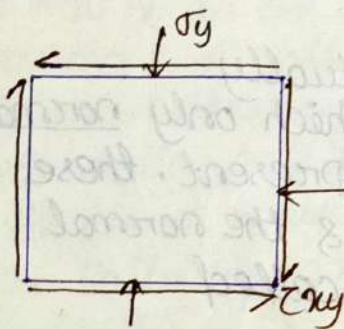 σy
τxy